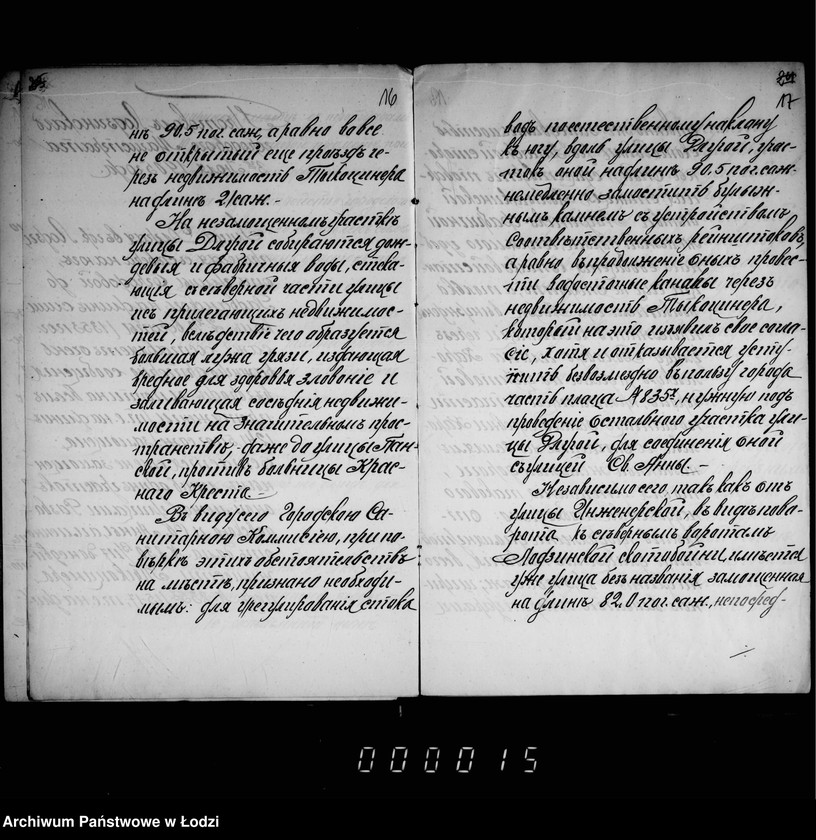 16
нѣ 90.5 пог. саж., а равно вовсе
не открытый еще проѣздъ че-
резъ недвижимость Тыкоцинера
на длинѣ 21 саж. -
На незамощенномъ участкѣ
улицы Дикой собираются дож-
девыя и фабричныя воды, стека-
ющія съ сѣверной части улицы
и съ прилегающихъ недвижимос-
тей, вслѣдствіе чего образуется
большая лужа грязи, издающая
вредное для здоровья зловоніе и
заливающая сосѣднія недвижи-
мости на значительномъ прос-
транствѣ, даже до улицы Пан-
ской, противъ больницы Крас-
наго Креста. -
Въ виду сего Городскою Са-
нитарною Коммисіею, при по-
вѣркѣ этихъ обстоятельствъ
на мѣстѣ, признано необходи-
мымъ: для урегулированія стока
17
водъ по естественному наклону
къ югу, вдоль улицы Дикой, учас-
токъ оной на длинѣ 90.5 пог. саж.
немедленно замостить булыж-
нымъ камнемъ съ устройствомъ
соотвѣтственныхъ рейнштоковъ,
а равно въ продолженіе оныхъ провес-
ти водосточные каналы черезъ
недвижимость Тыкоцинера,
который на это изъявилъ свое согла-
сіе, хотя и отказывается усту-
пить безвозмездно въ пользу города
часть плаца № 835, нужную подъ
проведеніе остального участка ули-
цы Дикой, для соединенія оной
съ улицей Св. Анны. -
Независимо сего, такъ какъ отъ
улицы Инженерской, въ видѣ пово-
рота къ сѣвернымъ воротамъ
Лодзинской скотобойни, имѣется
уже улица безъ названія замощенная
на длинѣ 82.0 пог. саж., непосред-
000015
Archiwum Państwowe w Łodzi